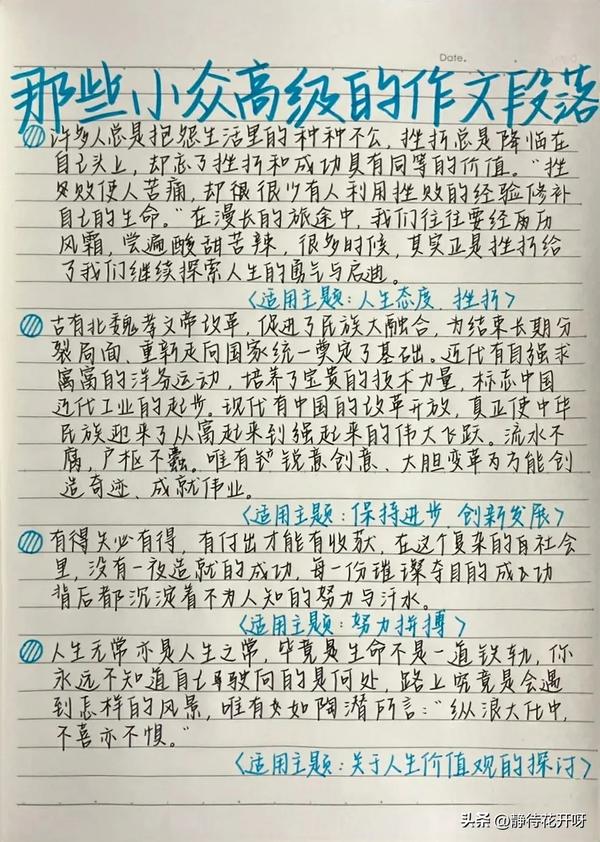 Date.
那些小众高级的作文段落
许多人总是抱怨生活里的种种不公，挫折总是降临在
自己头上，却忘了挫折和成功具有同等的价值。“挫
败使人苦痛，却很很少有人利用挫败的经验修补
自己的生命。”在漫长的旅途中，我们往往要经历
风霜，尝遍酸甜苦辣，很多时候，其实正是挫折给
了我们继续探索人生的勇气与启迪。
<适用主题：人生态度、挫折>
古有北魏孝文帝改革，促进了民族大融合，为结束长期分
裂局面、重新走向国家统一奠定了基础。近代有自强求
富富的洋务运动，培养了宝贵的技术力量，标志中国
近代工业的起步。现代有中国的改革开放，真正使中华
民族迎来了从富起来到强起来的伟大飞跃。流水不
腐，户枢不蠹。唯有锐意创意、大胆变革方方能创
造奇迹、成就伟业。
<适用主题：保持进步 创新发展>
有得失必有得，有付出才能有收获，在这个复杂的社会
里，没有一夜造就的成功，每一份璀璨夺目的成功
背后都沉淀着不为人知的努力与汗水。
<适用主题：努力拼搏>
人生无常亦是人生之常，毕竟是生命不是一道铁轨，你
永远不知道自己驶向的是何处，路上究竟是会遇
到怎样的风景，唯有如陶潜所言：“纵浪大化中，
不喜亦不惧。”
<适用主题：关于人生价值观的探讨>
头条 @静待花开呀